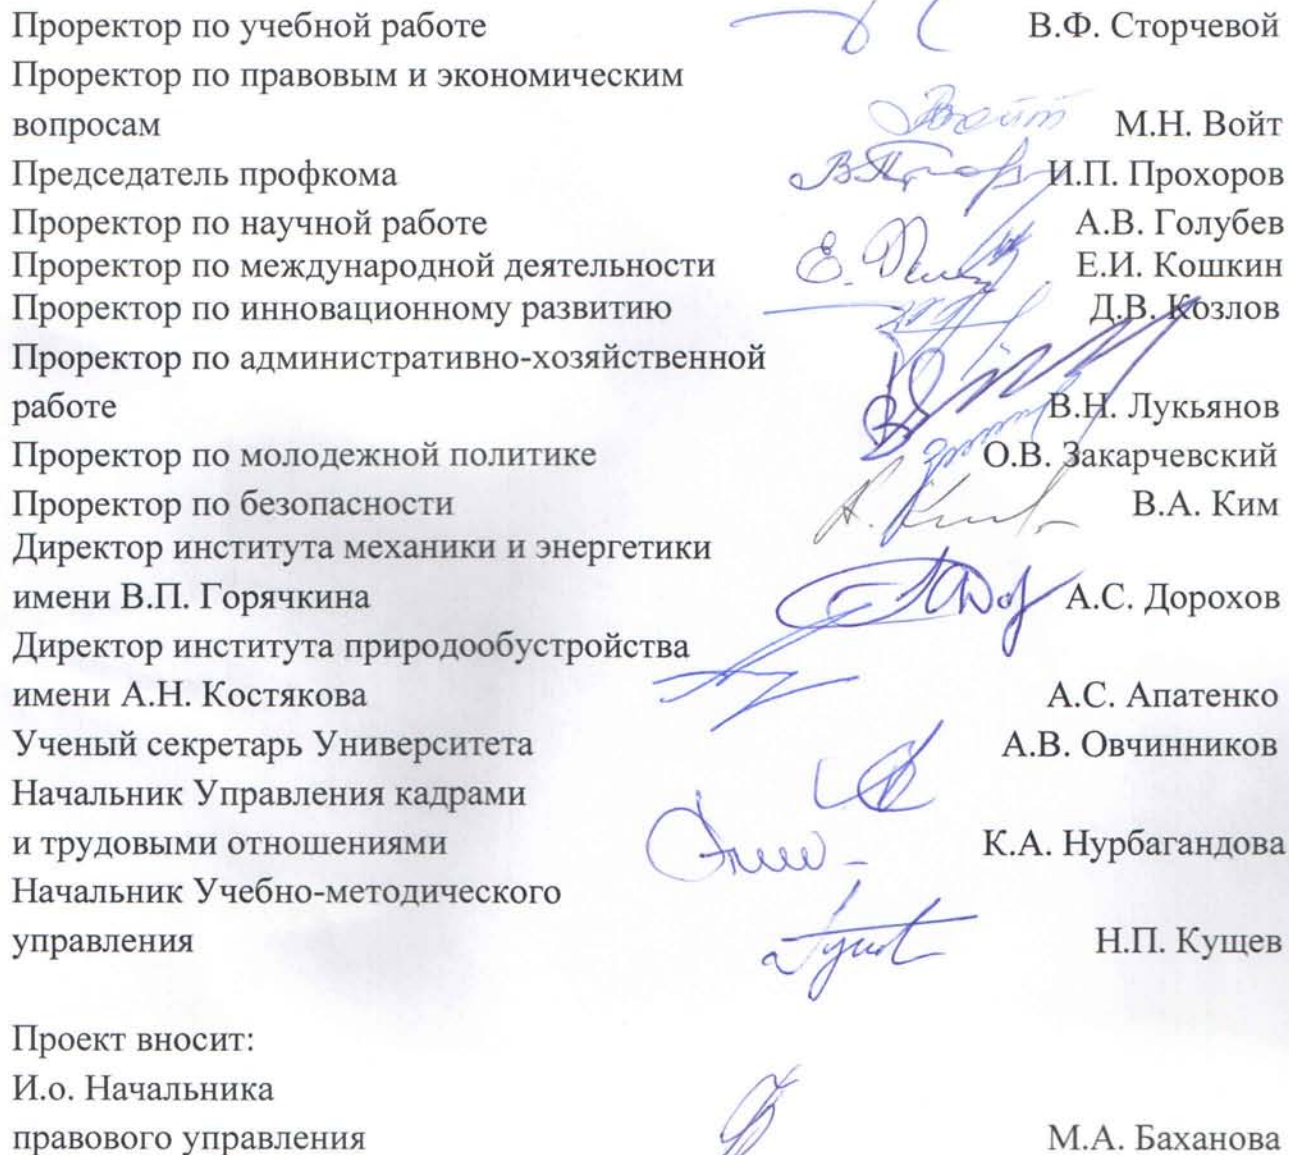 Проректор по учебной работе В.Ф. Сторчевой
Проректор по правовым и экономическим
вопросам М.Н. Войт
Председатель профкома И.П. Прохоров
Проректор по научной работе А.В. Голубев
Проректор по международной деятельности Е.И. Кошкин
Проректор по инновационному развитию Д.В. Козлов
Проректор по административно-хозяйственной
работе В.Н. Лукьянов
Проректор по молодежной политике О.В. Закарчевский
Проректор по безопасности В.А. Ким
Директор института механики и энергетики
имени В.П. Горячкина А.С. Дорохов
Директор института природообустройства
имени А.Н. Костякова А.С. Апатенко
Ученый секретарь Университета А.В. Овчинников
Начальник Управления кадрами
и трудовыми отношениями К.А. Нурбагандова
Начальник Учебно-методического
управления Н.П. Кущев
Проект вносит:
И.о. Начальника
правового управления М.А. Баханова